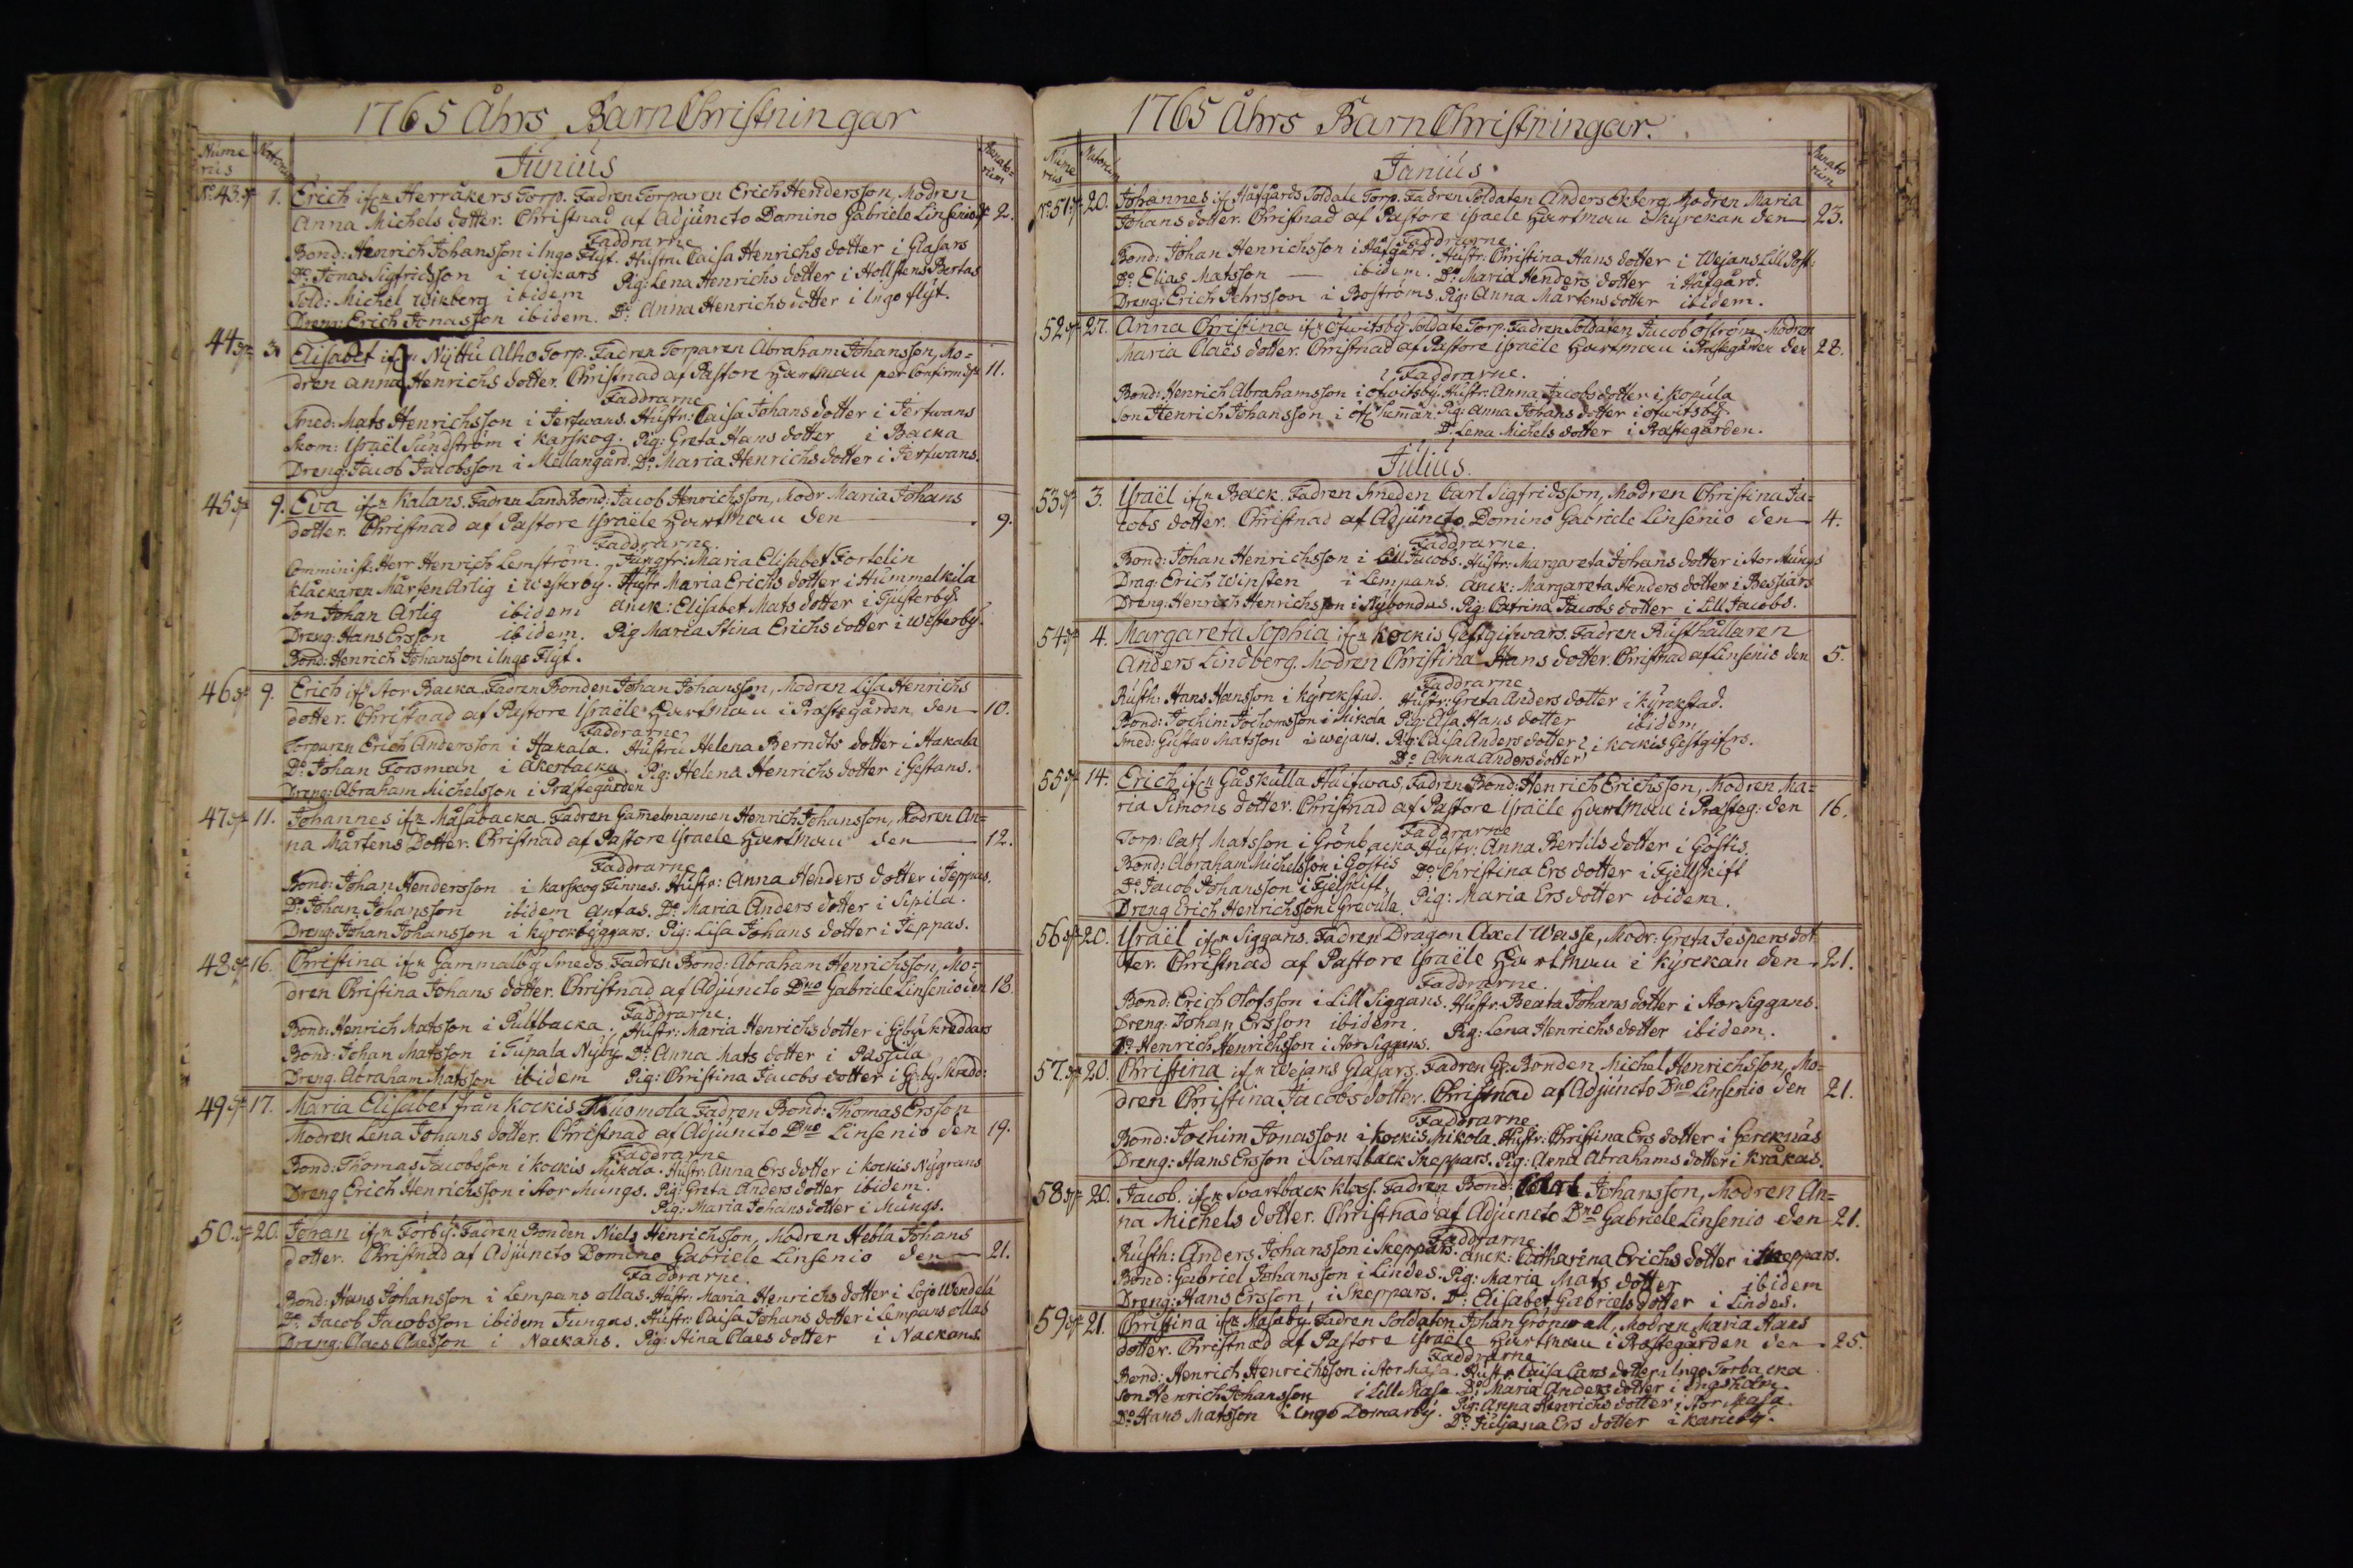 1765 Åhrs BarnChristningar
Nume
rus
Natorum
Junius
Renato-
rum
No. 43. 1. Erich ifrn Herråkers Torp. Fadren Torparen Erich Hendersson, Modren
Anna Michels dotter. Christnad af Adjuncto Domino Gabriele Linsenio d. 2.
Faddrarne
Bond: Henrich Johansson i Ingo Flyt. Hustru Caisa Henrichs dotter i Glasars
Do Jonas Sigfridsson i Wikars Pig: Lena Henrichs dotter i Hollstens Bertas
Sold: Michel Wikberg ibidem Do: Anna Henrichs dotter i Ingo flyt.
Dreng: Erich Jonasson ibidem.
44 3 Elisabet ifrn Nyttu Alho Torp. Fadren Torparen Abraham Johansson, Mo=
dren Anna Henrichs dotter. Christnad af Pastore Hartman per Confirm: 11.
Faddrarne
Smed: Mats Henrichsson i Jerfwans. Hustr: Caisa Johans dotter i Jerfwans
Skom: Israël Sundström i Karskog. Pig: Greta Hans dotter i Backa
Dreng: Jacob Jacobsson i Mellangård. Do: Maria Henrichs dotter i Jerfwans.
45 9. Eva ifrn Kalans. Fadren LandBond: Jacob Henrichsson, Modr Maria Johans
dotter. Christnad af Pastore Israële Hartman den 9.
Faddrarne.
Comminist: Herr Henrich Lemström. Jungfr: Maria Elisabet Fortelin
klåckaren Mårten Arlig i Westerby. Hustr Maria Erichs dotter i Hummelkila
Son Johan Arlig ibidem Anck: Elisabet Mats dotter i Gjusterby.
Dreng: Hans Ersson ibidem. Pig Maria Stina Erichs dotter i Westerby.
Bond: Henrich Johansson i Ingo Flyt.
46 9. Erich ifrn Stor Backa. Fadren Bonden Johan Johansson, Modren Lisa Henrichs
dotter. Christnad af Pastore Israële Hartman i Præstegården den 10.
Faddrarne
Torparen Erich Andersson i Hakala. Hustru Helena Berndts dotter i Hakala
Do: Johan Forsman i Åkerbacka. Pig: Helena Henrichs dotter i Gestans.
Dreng: Abraham Michelsson i Præstegården
47 11. Johannes ifrn Måsabacka. Fadren Gamelmannen Henrich Johansson, Modren An=
na Mårtens Dotter. Christnad af Pastore Israele Hartman den 12.
Faddrarne
Bond: Johan Hendersson i Karskog Finnes. Hustr: Anna Henders dotter i Jeppas.
Do: Johan Johansson ibidem Antas. Do: Maria Anders dotter i Sipila.
Dreng: Johan Johansson i kyrckbyggars. Pig: Lisa Johans dotter i Jeppas.
48 16. Christina ifrn Gammalby Smeds. Fadren Bond: Abraham Henrichsson, Mo=
dren Christina Johans dotter. Christnad af Adjuncto Dno Gabriele Linsenio den 18.
Faddrarne.
Bond: Henrich Matsson i Pultbacka. Hustr: Maria Henrichs dotter i Giby Skreddars
Bond: Johan Matsson i Tupala Nyby. Do: Anna Mats dotter i Passila
Dreng. Abraham Matsson ibidem Pig: Christina Jacobs dotter i Giby Skredd:
49 17. Maria Elisabet från Kockis Tuomola Fadren Bond: Thomas Ersson
Modren Lena Johans dotter. Christnad af Adjuncto Dno Linsenio den 19.
Faddrarne
Bond: Thomas Jacobsson i kockis Mikola. Hustr: Anna Ers dotter i kockis Nygrans
Dreng Erich Henrichsson i Stor Mungs. Pig: Greta Anders dotter ibidem.
Pig: Maria Johans dotter i Mungs.
50. 20. Johan ifrn Torby. Fadren Bonden Niels Henrichsson, Modren Hebla Johans
dotter. Christnad af Adjuncto Domino Gabriele Linsenio den 21.
Faddrarne.
Bond: Hans Johansson i Lempans ollas. Hustr: Maria Henrichs dotter i Lojo Wendelä
Do: Jacob Jacobsson ibidem Jungas. Hustr: Caisa Johans dotter i Lempans ollas
Dreng: Claes Claesson i Nackans. Pig: Stina Claes dotter i Nackans.
1765 Åhrs BarnChristningar.
Nume
rus
Natorum
Junius
Renato
rum
No. 51. 20. Johannes ifrn Håfgårds Soldate Torp. Fadren Soldaten Anders Ekberg, Modren Maria
Johans dotter. Christnad af Pastore Israele Hartman i kyrckan den 23.
Faddrarne
Bond: Johan Henrichsson i Håfgård. Hustr: Christina Hans dotter i Wejans Lill Påff:
Do Elias Matsson ibidem. Do: Maria Henders dotter i Håfgård.
Dreng: Erich Pehrsson i Boströms. Pig: Anna Mårtens dotter ibidem.
52 27. Anna Christina ifrn Ofwitsby Soldate Torp. Fadren Soldaten Jacob Öström Modren
Maria Claës dotter. Christnad af Pastore Israële Hartman i Præstegården den 28.
Faddrarne.
Bond: Henrich Abrahamsson i Ofwitsby. Hustr: Anna Jacobs dotter i Kopula
Son Henrich Johansson i Heman. Pig: Anna Johans dotter i ofwitsby.
Do: Lena Michels dotter i Præstegården.
Julius.
53 3. Israël ifrn Back. Fadren Smeden Carl Sigfridsson, Modren Christina Ja=
cobs dotter. Christnad af Adjuncto Domino Gabriele Linsenio den 4.
Faddrarne.
Bond: Johan Henrichsson i Lill Jacobs. Hustr: Margareta Johans dotter i Stor Mungs
Drag: Erich Winsten i Lempans. Anck: Margareta Henders dotter i Bessiars
Dreng: Henrich Henrichsson i Nybondas. Pig: Catrina Jacobs dotter i Lill Jacobs.
54 4. Margareta Sophia ifrn Kockis Gestgifwars. Fadren Rusthållaren
Anders Lindberg. Modren Christina Hans dotter. Christnad af Linsenio den 5.
Faddrarne
Rusth: Hans Hansson i kyrckstad. Hustr: Greta Anders dotter i kyrckstad.
Bond: Jochim Jochomsson i Mikola Pig: Lisa Hans dotter ibidem
Smed: Gustav Matsson i wejans. Pig: Caisa Anders dotter i kockis Gestgifrs.
Do Anna Anders dotter
55 14. Erich ifrn Gåskulla Huifwas, Fadren Bond: Henrich Erichsson, Modren Ma=
ria Simons dotter. Christnad af Pastore Israële Hartman i Præsteg: den 16.
Faddrarne
Torp: Carl Matsson i Grönbacka Hustr: Anna Bertils dotter i Göstis.
Bond: Abraham Michelsson i Göstis Do: Christina Ers dotter i Fjellskift
Do Jacob Johansson i Fjelskift. Pig: Maria Ers dotter ibidem.
Dreng Erich Henrichsson i Grevula.
56 20. Israël ifrn Siggans. Fadren Dragon Axel Wasse, Modr: Greta Jespers dot
ter. Christnad af Pastore Israële Hartman i kyrckan den 21.
Faddrarne.
Bond: Erich Olofsson i Lill Siggans. Hustr: Beata Johans dotter i Stor Siggans.
Dreng: Johan Ersson ibidem. Pig: Lena Henrichs dotter ibidem.
Do Henrich Henrichsson i Stor Siggans.
57. 20. Christina ifrn Wejans Glasars. Fadren Bonden Michel Henrichsson, Mo=
dren Christina Jacobs dotter. Christnad af Adjuncto Dno Linsenio den 21.
Faddrarne.
Bond: Jochim Jonasson i kockis Mikola. Hustr: Christina Ers dotter i Gercknäs
Dreng: Hans Ersson i Svartback Skeppars. Pig: Anna Abrahams dotter i kråkais.
58 20. Jacob. ifrn Svartback Klas. Fadren Bond: Carl Johansson, Modren An=
na Michels dotter. Christnad af Adjuncto Dno Gabriele Linsenio den 21.
Faddrarne
Rusth: Anders Johansson i Skeppars. Anck: Catharina Erichs dotter i Skeppars.
Bond: Gabriel Johansson i Lindes. Pig: Maria Mats dotter ibidem
Dreng: Hans Ersson, i Skeppars. Do: Elisabet Gabriels dotter i Lindes.
59 21. Christina ifrn Masaby. Fadren Soldaten Johan Grönwall, Modren Maria Hans
dotter. Christnad af Pastore Israële Hartman i Præstegården den 25.
Faddrarne
Bond: Henrich Henrichsson i Stor Masa. Hustr Caisa Cars dotter i Ingo Torbacka
Son Henrich Johansson i Lill Masa Do: Maria Anders dotter i Engsholm
Do Hans Matsson i Ingo Domarby. Pig: Anna Henrichs dotter i Stor Masa.
Do: Juljana Ers dotter i Karuby.